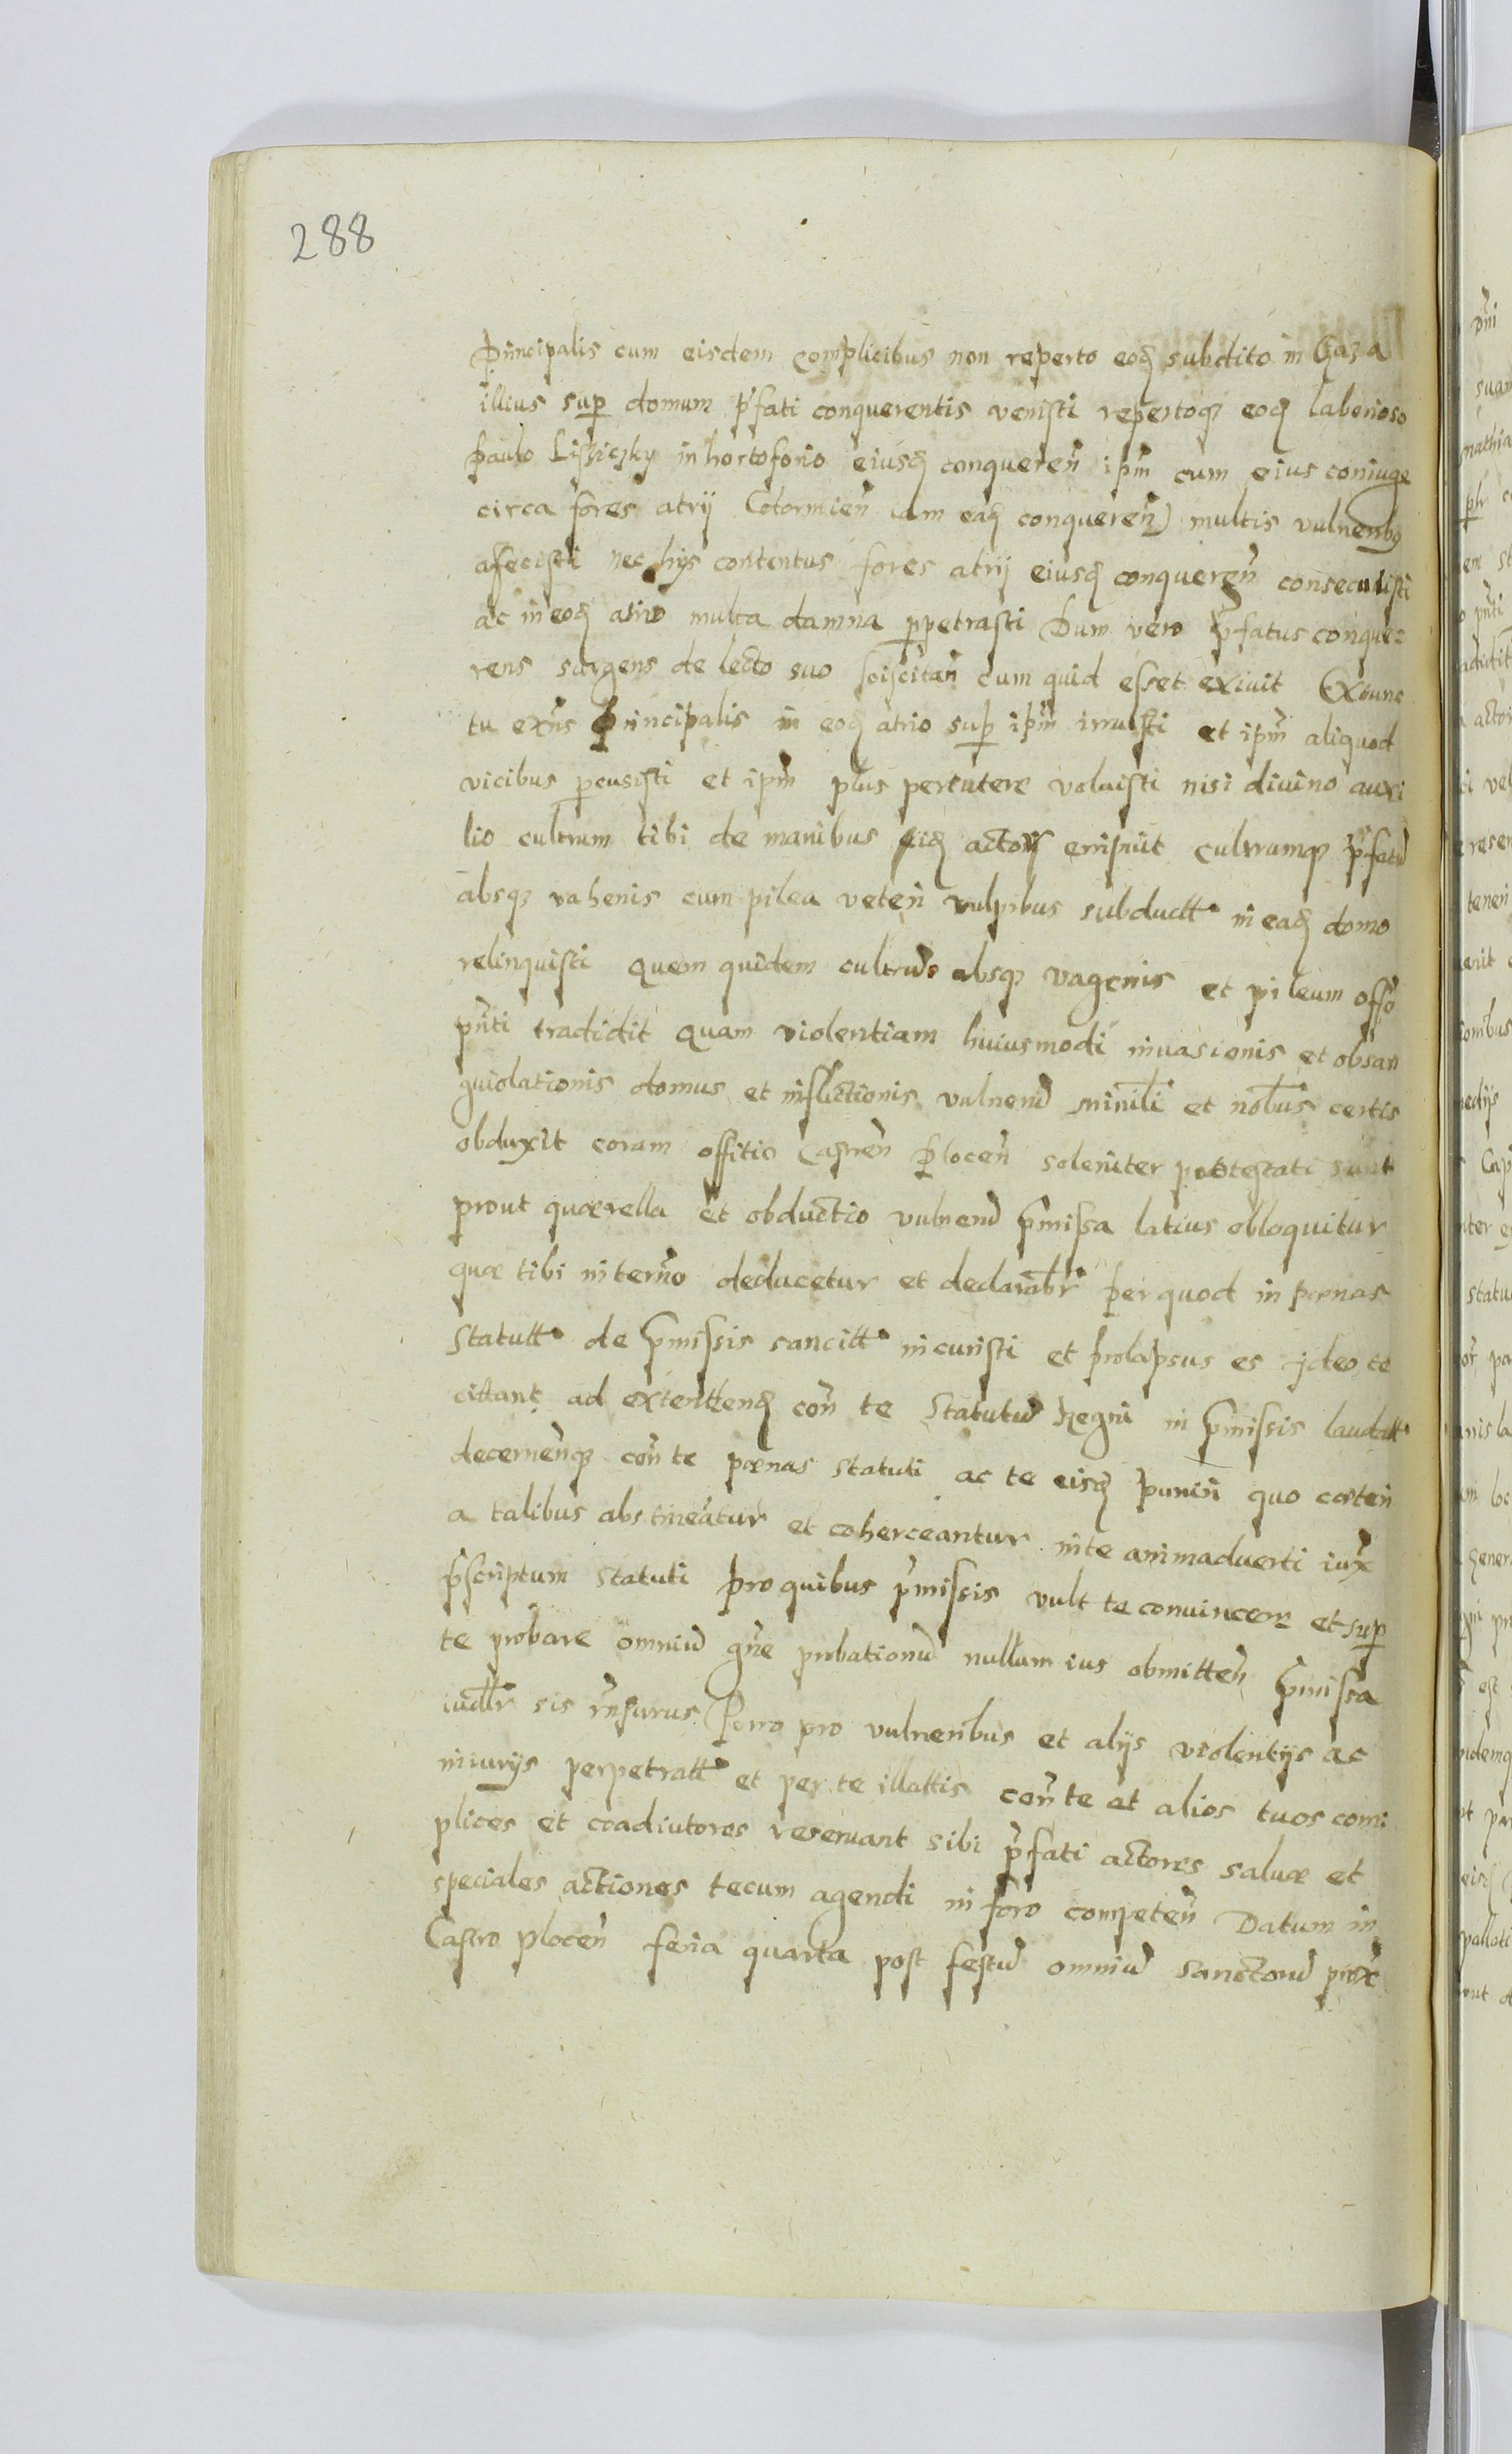 288
Principalis cum eisdem complicibus non reperto eodꝫ subdito in Caza
illius sup domum p̃fati conquerentis venisti repertoqꝫ eodꝫ laborioso
Paulo Lissiczky in hortoforio eiusdꝫ conqueren̄ ip̃m cum eius coniuge
circa fores atrij conqueren̄) multis vulneribꝫ
afecisti nec hijs contentus fores atrij eiusdꝫ conqueren̄ consecuisti
ac in eodꝫ atrio multa damna ꝑpetrasti Dum vero p̃fatus conque
rens surgens de lecto suo sciscitan̄ cum quid esset exiuit Extunc
tu ex̃ns principalis in eodꝫ atrio sup ip̃m irruisti et ip̃m aliquod
vicibus ꝑcusisti et ip̃m plus percutere voluisti nisi diuino auxi
lio cultrum tibi de manibus actor eripuit cultrumqꝫ p̃fatū
absqꝫ vahenis cum pilea veteri vulpibus subductt in eadꝫ domo
relinquisti quem quidem cultrum absqꝫ vagenis et pileum offo
p̃nti tradidit quam violentiam huiusmodi inuasionis et obsan
guiolationis domus et inflictionis vulnerū minil̃i et nob̃us certis
obduxit coram offitio Castren̄ Plocen̄ soleniter protestati sunt
prout quærella et obductio vulnerū p̃missa latius obloquitur
quæ tibi in ter̃no deducetur et declarabr̃ per quod in pœnas
statutt de p̃missis sancitt incuristi et prolapsus es ideo te
cittant ad extentendꝫ con̄ te statutū Regni in p̃missis laudatt
decernen̄qꝫ con̄ te pœnas statuti ac te eisdꝫ puniri quo cæteri
a talibus abstineatur et coherceantur in te animaduerti iux̃
p̃scriptum statuti pro quibus p̃missis vult te conuincere et sup
te probare omniū gñe probationū nullum ius obmitten̄ p̃missa
iudlr̃ sis rñsurus Porro pro vulneribus et alijs violentijs ac
iniurijs perpetratt et per te illattis con̄ te et alios tuos com
plices et coadiutores reseruant sibi p̃fati actores saluæ et
speciales actiones tecum agendi in foro competen̄ Datum in
Castro Plocen̄ feria quarta post festū omniū sanctorū prox̃